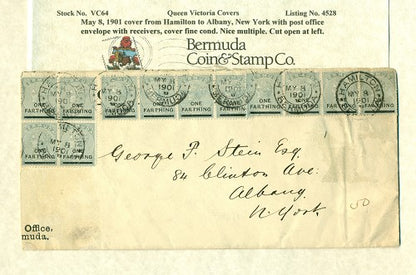 Stock No. VC64 Queen Victoria Covers Listing No. 4528
May 8, 1901 cover from Hamilton to Albany, New York with post office
envelope with receivers, cover fine cond. Nice multiple. Cut open at left.
Bermuda
Coin & Stamp Co.
HAMILTON
MY 8
1901
ONE
FARTHING
ONE
FARTHING
ONE
FARTHING
ONE
FARTHING
ONE
FARTHING
ONE
FARTHING
ONE
FARTHING
ONE
FARTHING
ONE
FARTHING
MY 8
1901
ONE
FARTHING
ONE
FARTHING
George F. Stein Esq.
84 Clinton Ave.
Albany
N. York
Office,
muda.
50